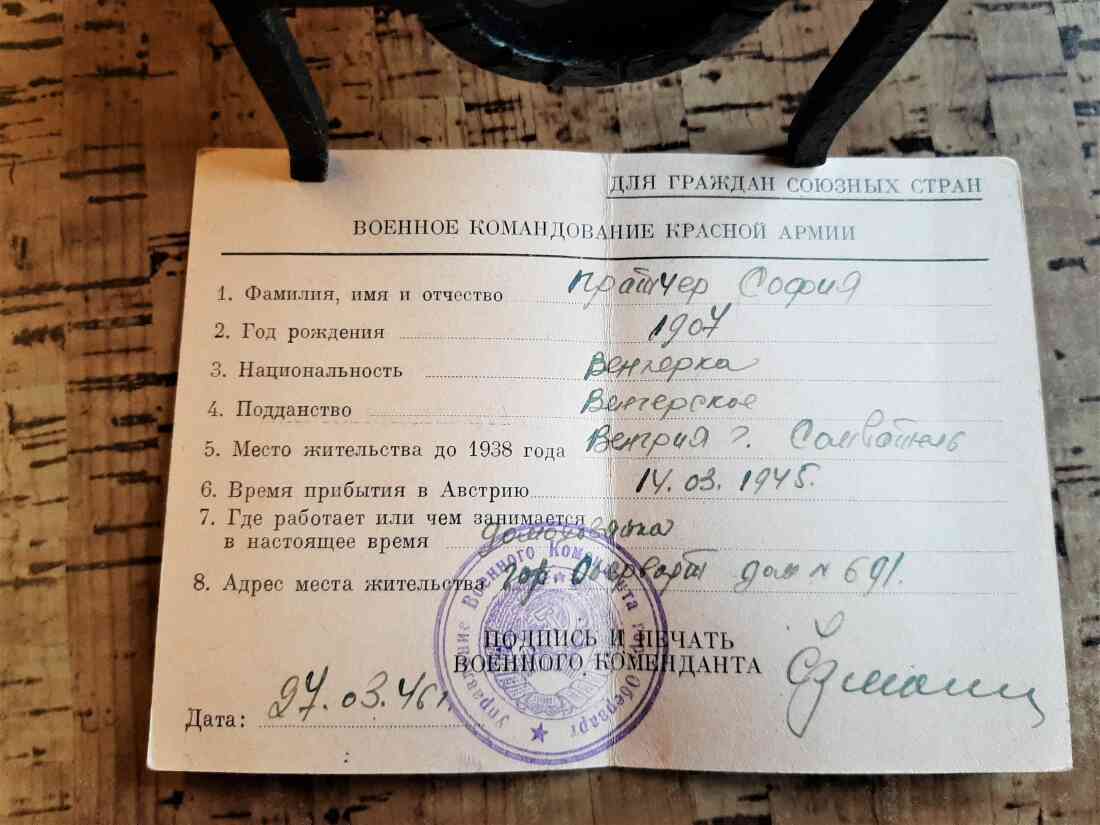 ДЛЯ ГРАЖДАН СОЮЗНЫХ СТРАН
ВОЕННОЕ КОМАНДОВАНИЕ КРАСНОЙ АРМИИ
1. Фамилия, имя и отчество Пратчер София
2. Год рождения 1907
3. Национальность Венгерка
4. Подданство Венгерское
5. Место жительства до 1938 года Венгрия г. Сомбатель
6. Время прибытия в Австрию 14.03.1945.
7. Где работает или чем занимается
в настоящее время домохозяйка
8. Адрес места жительства гор Оберварт дом № 691.
ПОДПИСЬ И ПЕЧАТЬ
ВОЕННОГО КОМЕНДАНТА
Дата: 27.03.46г.
Управление Военного Коменданта гор. Оберварт